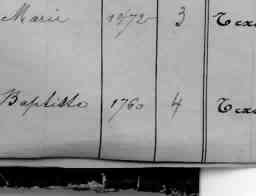 Marie 1972 3 Tex
Baptiste 1760 4 Tex